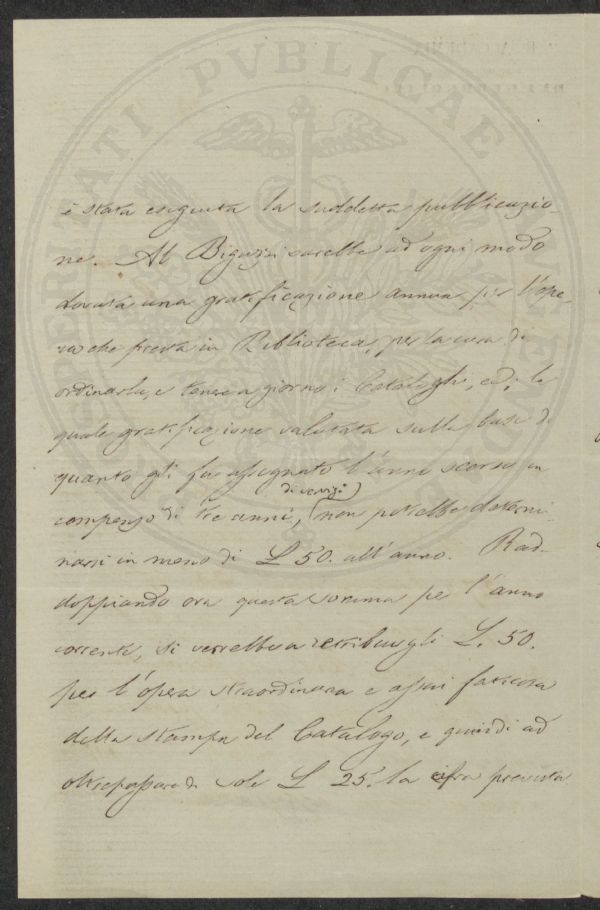 PROSPERITATI PVBLICAE AVGENDAE
R. ACCADEMIA
DEI GEORGOFILI
è stata eseguita la suddetta pubblicazio-
ne. Al Bigazzi sarebbe ad ogni modo
dovuta una gratificazione annua per l'ope-
ra che presta in Biblioteca, per la cura di
ordinarla, e tenere a giorno i Cataloghi, ec; la
quale gratificazione valutata sulla base di
quanto gli fu assegnato l'anno scorso in
di servizi
compenso di tre anni, non potrebbe determi-
narsi in meno di L 50. all'anno. Rad-
doppiando ora questa somma per l'anno
corrente, si verrebbe a retribuirgli L. 50.
per l'opera straordinaria e assai faticosa
della stampa del Catalogo, e quindi ad
oltrepassare di sole L 25. la cifra prevista